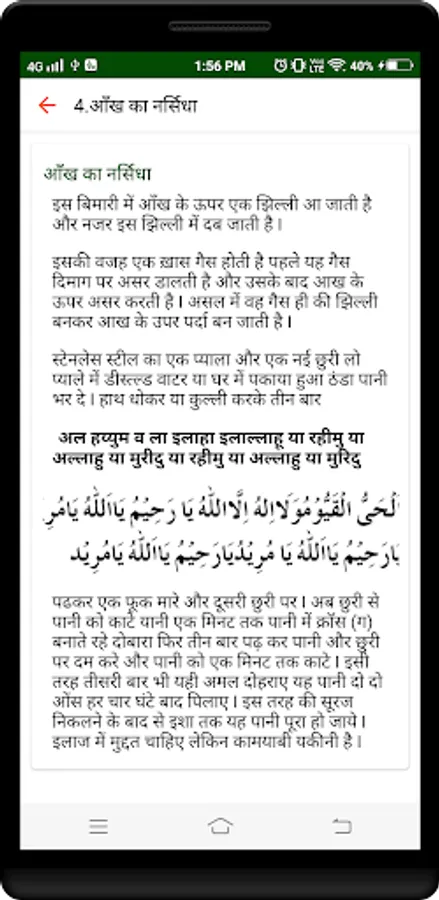 4G 1:56 PM VoLTE 40%
4.आँख का नर्सिधा
आँख का नर्सिधा
इस बिमारी में आँख के ऊपर एक झिल्ली आ जाती है
और नजर इस झिल्ली में दब जाती है।
इसकी वजह एक ख़ास गैस होती है पहले यह गैस
दिमाग पर असर डालती है और उसके बाद आख के
ऊपर असर करती है। असल में वह गैस ही की झिल्ली
बनकर आख के उपर पर्दा बन जाती है।
स्टेनलेस स्टील का एक प्याला और एक नई छुरी लो
प्याले में डीस्ल्ड वाटर या घर में पकाया हुआ ठंडा पानी
भर दे। हाथ धोकर या कुल्ली करके तीन बार
अल हय्युम व ला इलाहा इलाल्लाहू या रहीमु या
अल्लाहु या मुरीदु या रहीमु या अल्लाहु या मुरिदु
لْحَىُّ الْقَيُّوْمُوَلَااِلهُ اِلَّااللهُ يَا رَحِيْمُ يَااَللهُ يَامُرِ
يَارَحِيْمُ يَااَللهُ يَا مُرِيْدُيَارَحِيْمُ يَااَللهُ يَامُرِيْد
पढकर एक फूक मारे और दूसरी छुरी पर। अब छुरी से
पानी को काटें यानी एक मिनट तक पानी में क्रॉस (ग)
बनाते रहे दोबारा फिर तीन बार पढ़ कर पानी और छुरी
पर दम करे और पानी को एक मिनट तक काटे। इसी
तरह तीसरी बार भी यही अमल दोहराए यह पानी दो दो
ओंस हर चार घंटे बाद पिलाए। इस तरह की सूरज
निकलने के बाद से इशा तक यह पानी पूरा हो जाये।
इलाज में मुद्दत चाहिए लेकिन कामयाबी यकीनी है।